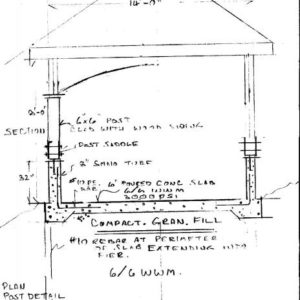 14'-0"
8'-0"
6x6 POST
CLAD WITH WOOD SIDING
SECTION
POST SADDLE
8" SONO TUBE
32"
6" POURED CONC SLAB
6/6 WWM
3000 PSI
COMPACT. GRAN. FILL
#10 REBAR AT PERIMETER
OF SLAB EXTENDING INTO
PIER.
6/6 WWM.
PLAN
POST DETAIL